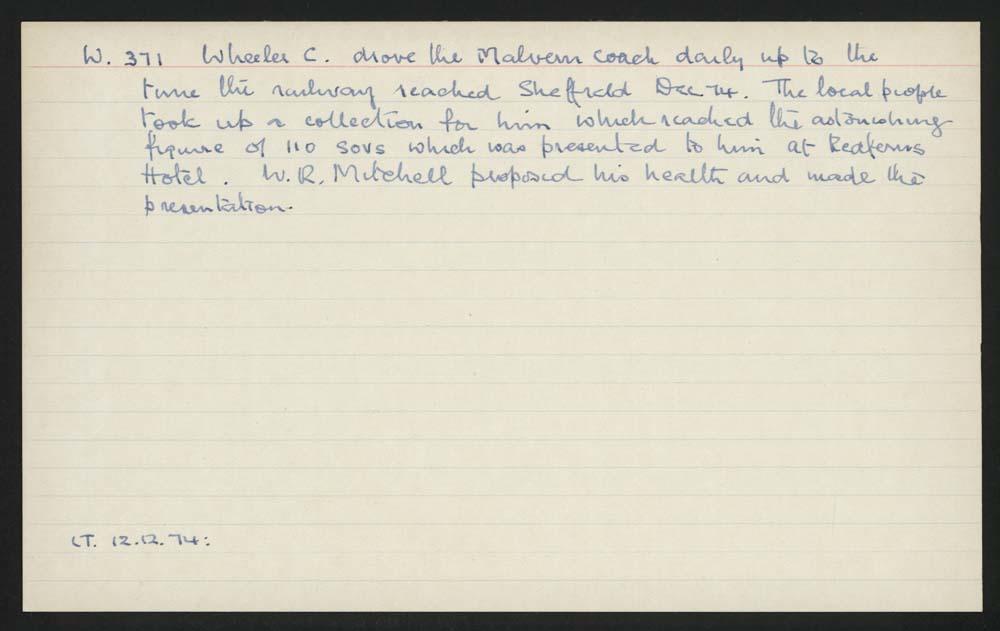 W. 371 Wheeler C. drove the Malvern coach daily up to the
time the railway reached Sheffield Dec 74. The local people
took up a collection for him which reached the astonishing
figure of 110 sovs which was presented to him at Redferns
Hotel. W. R. Mitchell proposed his health and made the
presentation.
LT. 12.12.74: